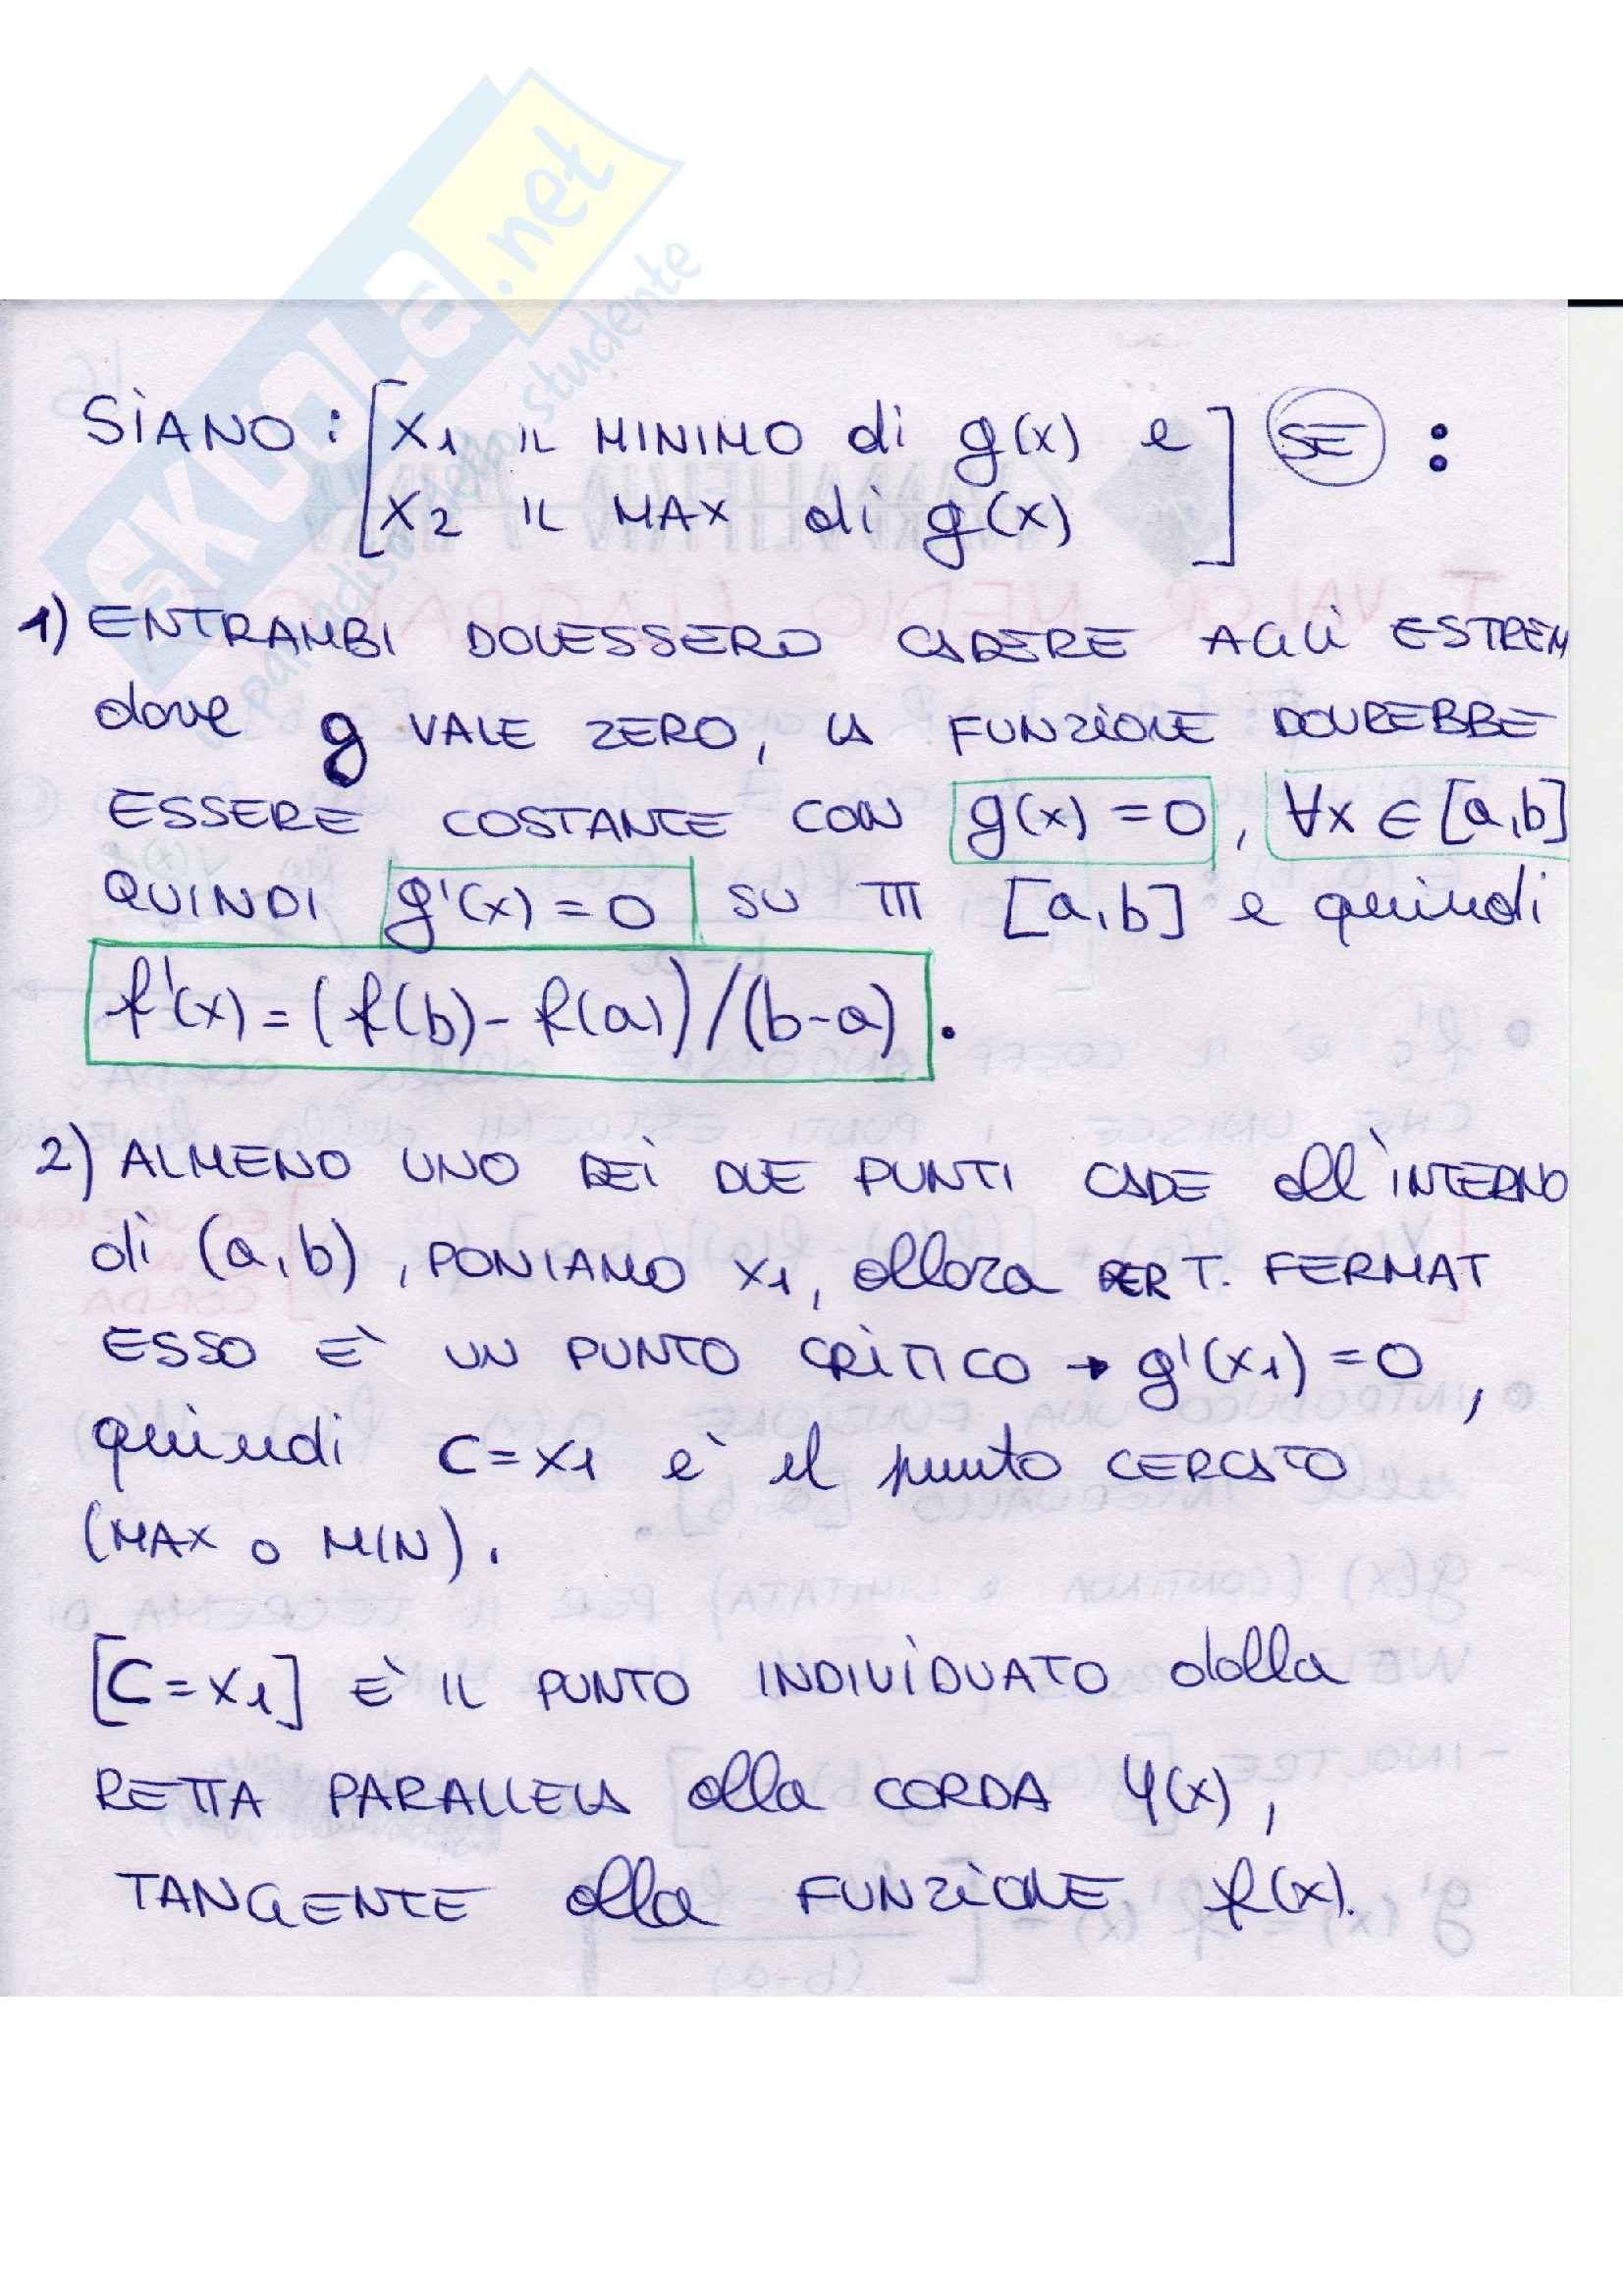 SKUOLA.net
paradiso dello studente
SIANO: [x1 IL MINIMO di g(x) e
x2 IL MAX di g(x)] SE :
1) ENTRAMBI DOVESSERO CADERE AGLI ESTREM
dove g VALE ZERO, LA FUNZIONE DOVREBBE
ESSERE COSTANTE CON g(x) = 0, ∀x ∈ [a,b]
QUINDI g'(x) = 0 SU TTT [a,b] e quindi
f'(x) = (f(b) - f(a))/(b-a).
2) ALMENO UNO DEI DUE PUNTI CADE all'INTERNO
di (a,b), PONIAMO x1, allora PER T. FERMAT
ESSO E' UN PUNTO CRITICO → g'(x1) = 0,
quindi C = x1 e' il punto CERCATO
(MAX o MIN).
[C = x1] E' IL PUNTO INDIVIDUATO dalla
RETTA PARALLELA alla CORDA Ψ(x),
TANGENTE alla FUNZIONE f(x).